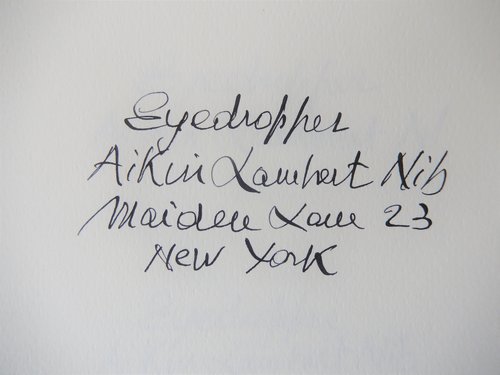 Eyedropper
Aikin Lambert Nib
Maiden Lane 23
New York